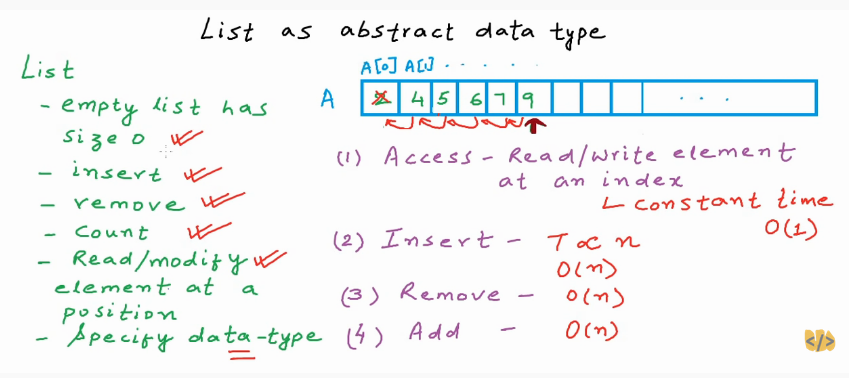 List as abstract data type
List
- empty list has
size 0
- insert
- remove
- count
- Read/modify
element at a
position
- Specify data-type
A[0] A[1] . . . .
A 2 4 5 6 7 9 . . .
(1) Access - Read/write element
at an index
constant time
O(1)
(2) Insert - T ∝ n
O(n)
(3) Remove - O(n)
(4) Add - O(n)
</>